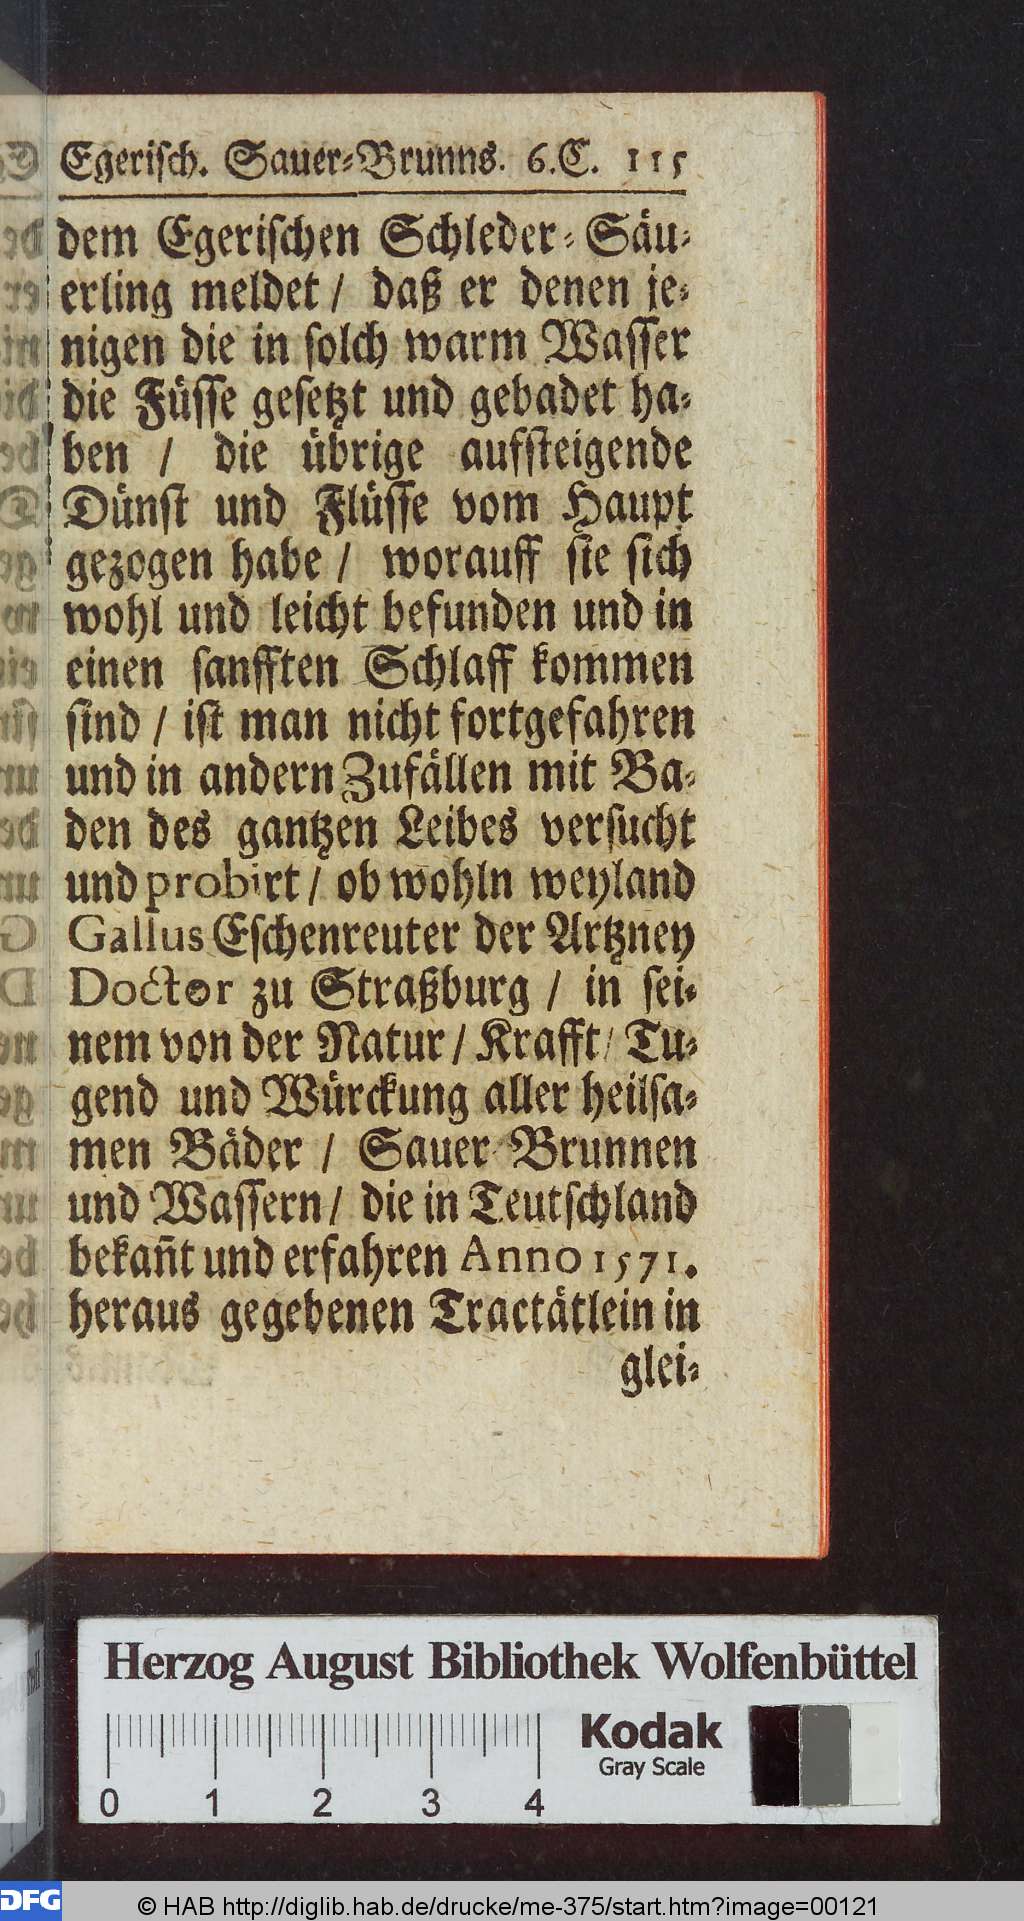 Egerisch. Sauer-Brunns. 6.C. 115
dem Egerischen Schleder-Säu-
erling meldet / daß er denen je-
nigen die in solch warm Wasser
die Füsse gesetzt und gebadet ha-
ben / die übrige aufsteigende
Dünst und Flüsse vom Haupt
gezogen habe / worauff sie sich
wohl und leicht befunden und in
einen sanfften Schlaff kommen
sind / ist man nicht fortgefahren
und in andern Zufällen mit Ba-
den des gantzen Leibes versucht
und probirt / ob wohln weyland
Gallus Eschenreuter der Artzney
Doctor zu Straßburg / in sei-
nem von der Natur / Krafft / Tu-
gend und Würckung aller heilsa-
men Bäder / Sauer-Brunnen
und Wassern / die in Teutschland
bekañt und erfahren Anno 1571.
heraus gegebenen Tractätlein in
glei-
Herzog August Bibliothek Wolfenbüttel
Kodak
Gray Scale
0 1 2 3 4
DFG © HAB http://diglib.hab.de/drucke/me-375/start.htm?image=00121